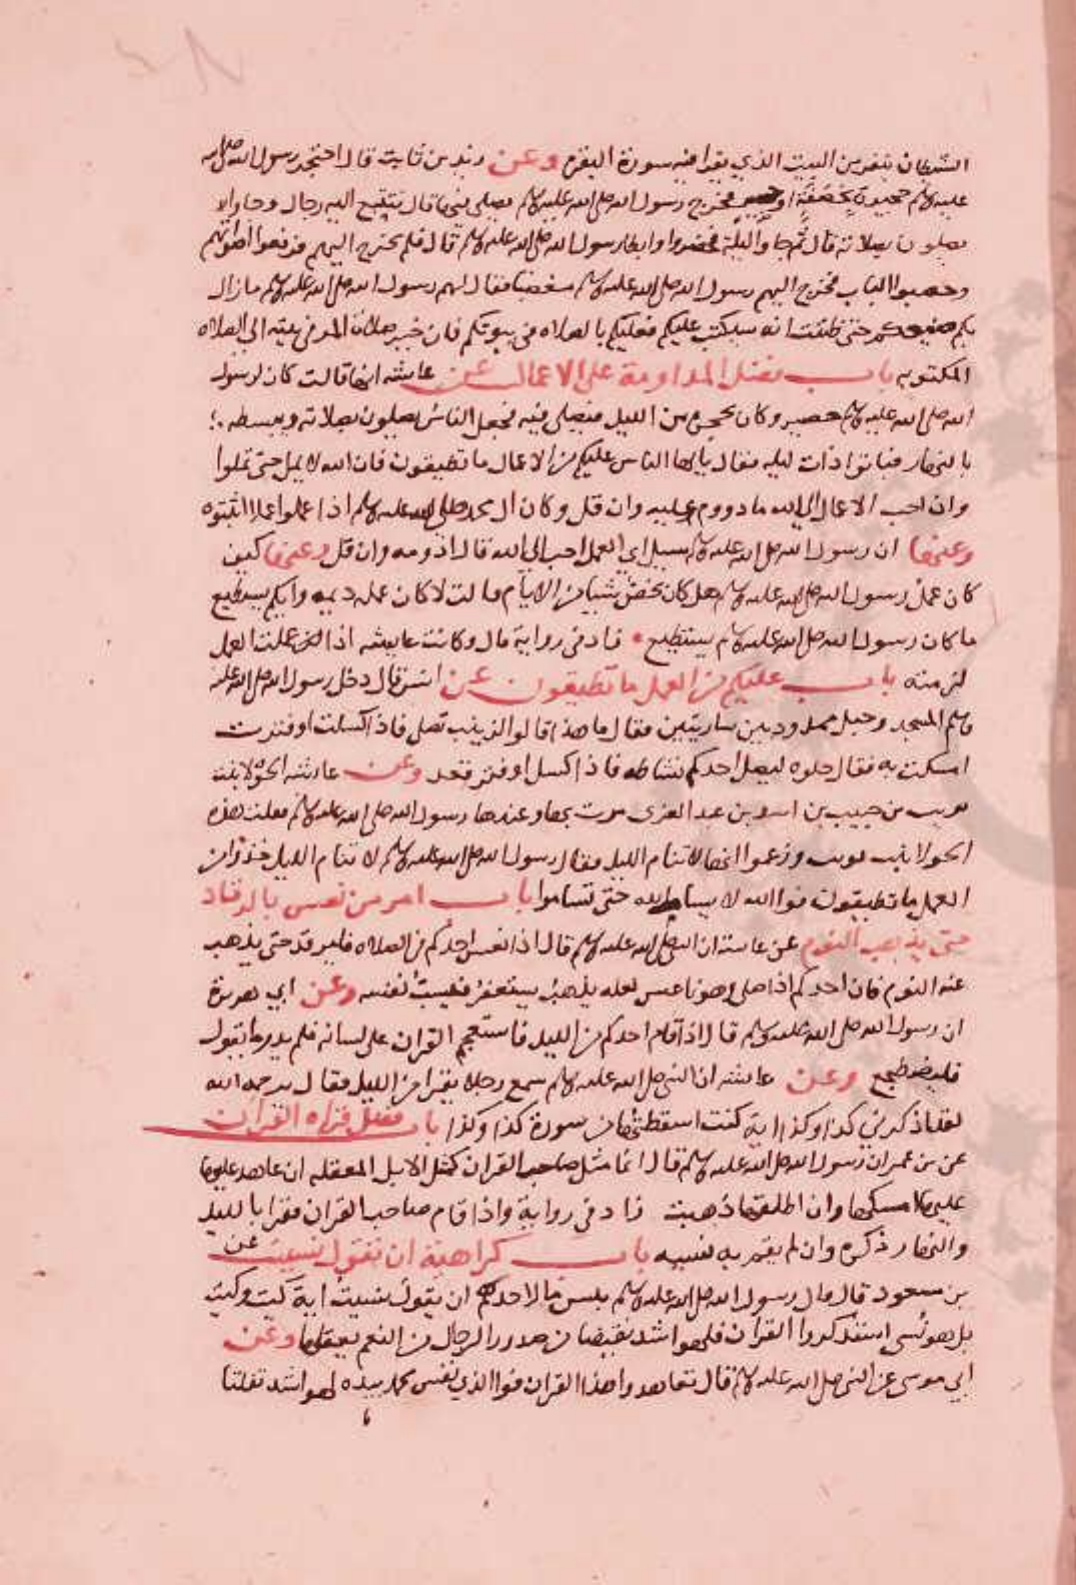 الشيطان ينفر من البيت الذي يقرا فيه سورة البقرة وعن زيد بن ثابت قال احتجر رسول الله صلى الله
عليه وسلم حجيرة بخصفة او حصير فخرج رسول الله صلى الله عليه وسلم يصلي فيها قال فتتبع اليه رجال وجاوا
يصلون بصلاته قال ثم جاوا ليلة فحضروا وابطا رسول الله صلى الله عليه وسلم قال فلم يخرج اليهم فرفعوا اصواتهم
وحصبوا الباب فخرج اليهم رسول الله صلى الله عليه وسلم مغضبا فقال لهم رسول الله صلى الله عليه وسلم مازال
بكم صنيعكم حتى ظننت انه سيكتب عليكم فعليكم بالصلاه في بيوتكم فان خير صلاة المرء في بيته الى الصلاه
المكتوبه باب فضل المداومة على الاعمال عن عائشه انها قالت كان لرسول
الله صلى الله عليه وسلم حصير وكان يحجره من الليل فيصلي فيه فجعل الناس يصلون بصلاته ويبسطه
بالنهار فثابوا ذات ليله فقال يايها الناس عليكم من الاعمال ما تطيقون فان الله لا يمل حتى تملوا
وان احب الاعمال الى الله ما دووم عليه وان قل وكان ال محمد صلى الله عليه وسلم اذا عملوا عملا اثبتوه
وعنها ان رسول الله صلى الله عليه وسلم سيل اي العمل احب الى الله قال ادومه وان قل وعنها كيف
كان عمل رسول الله صلى الله عليه وسلم هل كان يخص شيا من الايام قالت لا كان عمله ديمه وايكم يستطيع
ما كان رسول الله صلى الله عليه وسلم يستطيع زاد في رواية قال وكانت عايشه اذا عملت العمل
لزمته باب عليكم من العمل ما تطيقون عن انس قال دخل رسول الله صلى الله عليه
وسلم المسجد وحبل ممدود بين ساريتين فقال ما هذا قالوا لزينب تصلي فاذا كسلت او فترت
امسكت به فقال حلوه ليصل احدكم نشاطه فاذا كسل او فتر قعد وعن عائشه الحولا بنت
تويت بن حبيب بن اسد بن عبد العزى مرت بها وعندها رسول الله صلى الله عليه وسلم فقلت هذه
الحولا بنت تويت وزعموا انها لا تنام الليل فقال رسول الله صلى الله عليه وسلم لا تنام الليل خذوا من
العمل ما تطيقون فوالله لا يسام الله حتى تساموا باب امر من نعس بالرقاد
حتى يذهب النوم عن عائشة ان النبي صلى الله عليه وسلم قال اذا نعس احدكم في الصلاه فليرقد حتى يذهب
عنه النوم فان احدكم اذا صلى وهو ناعس لعله يذهب يستغفر فيسب نفسه وعن ابي هريرة
ان رسول الله صلى الله عليه وسلم قال اذا قام احدكم من الليل فاستعجم القران على لسانه فلم يدر ما يقول
فليضطجع وعن عائشه ان النبي صلى الله عليه وسلم سمع رجلا يقرا من الليل فقال يرحمه الله
لقد اذكرني كذا وكذا اية كنت اسقطتها من سورة كذا وكذا باب فضل قراه القران
عن بن عمر ان رسول الله صلى الله عليه وسلم قال انما مثل صاحب القران كمثل الابل المعقله ان عاهد عليها
عليها امسكها وان اطلقها ذهبت زاد في رواية واذا قام صاحب القران فقرا بالليل
والنهار ذكره وان لم يقم به نسيه باب كراهية ان تقول نسيت عن
بن مسعود قال قال رسول الله صلى الله عليه وسلم بئس ما لاحدكم ان يقول نسيت اية كيت وكيت
بل هو نسي استذكروا القران فلهو اشد تفصيا من صدور الرجال من النعم بعقلها وعن
ابي موسى عن النبي صلى الله عليه وسلم قال تعاهدوا هذا القران فوالذي نفس محمد بيده لهو اشد تفلتا